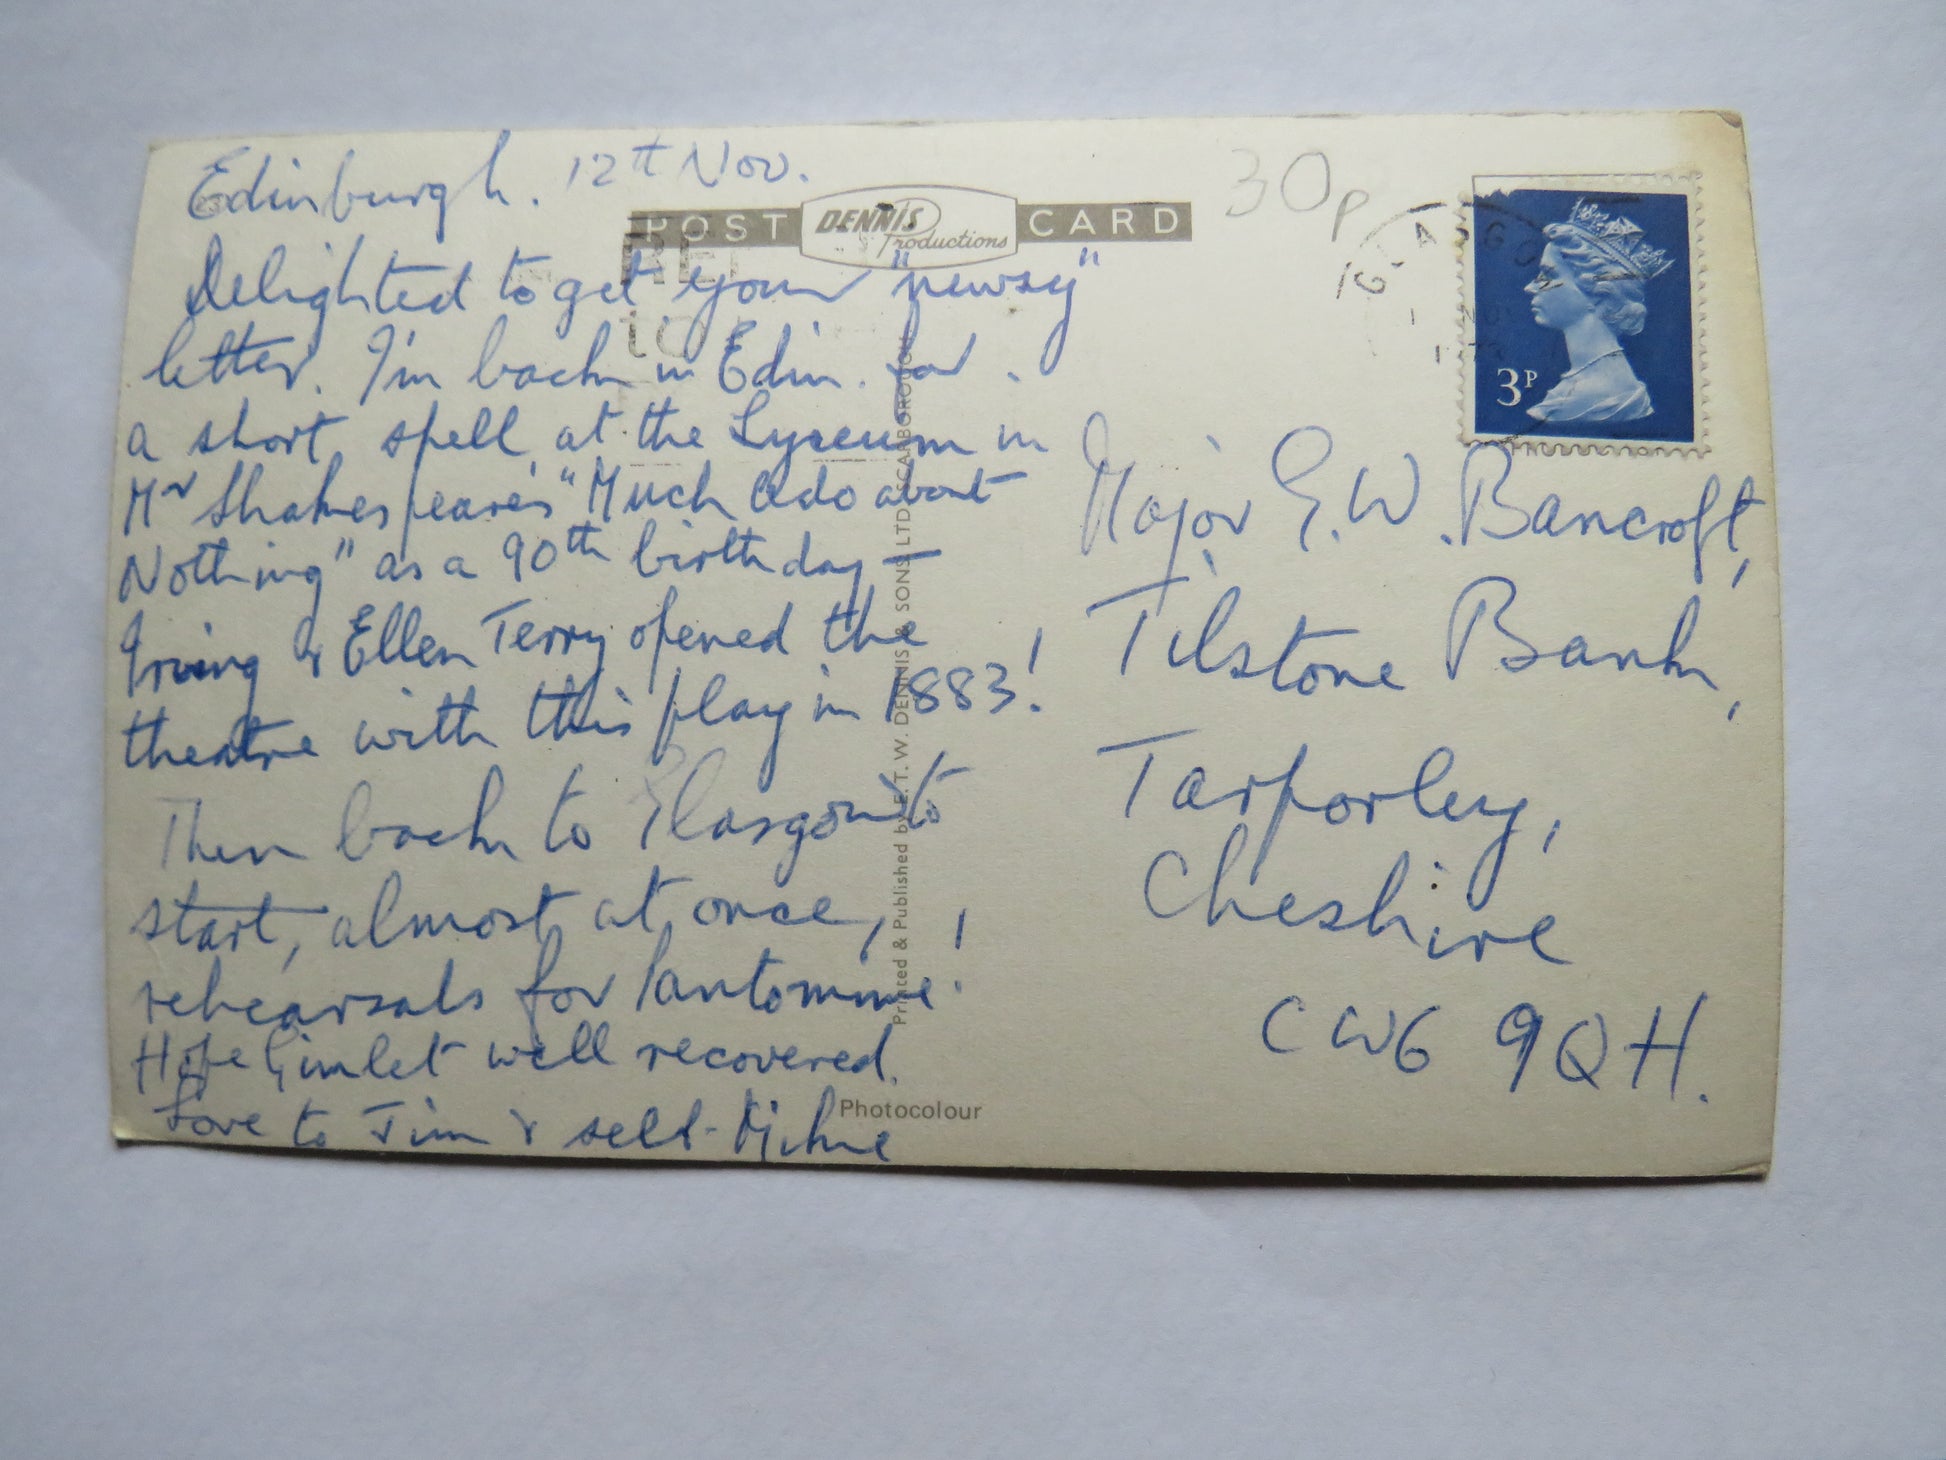 Edinburgh. 12th Nov.
Delighted to get your "newsy"
letter. I'm back in Edin. for
a short spell, at the Lyceum in
Mr Shakespeare's "Much Ado about
Nothing" as a 90th birthday –
Irving & Ellen Terry opened the
theatre with this play in 1883!
Then back to Glasgow to
start, almost at once,
rehearsals for Pantomime!
Hope Gimlet well recovered.
Love to Jim & self -
POST DENNIS Productions CARD
30p
GLASGOW
3P
Major G.W. Bancroft,
Tilstone Bank,
Tarporley,
Cheshire
CW6 9QH.
Printed & Published by E.T.W. DENNIS & SONS LTD SCARBOROUGH
Photocolour